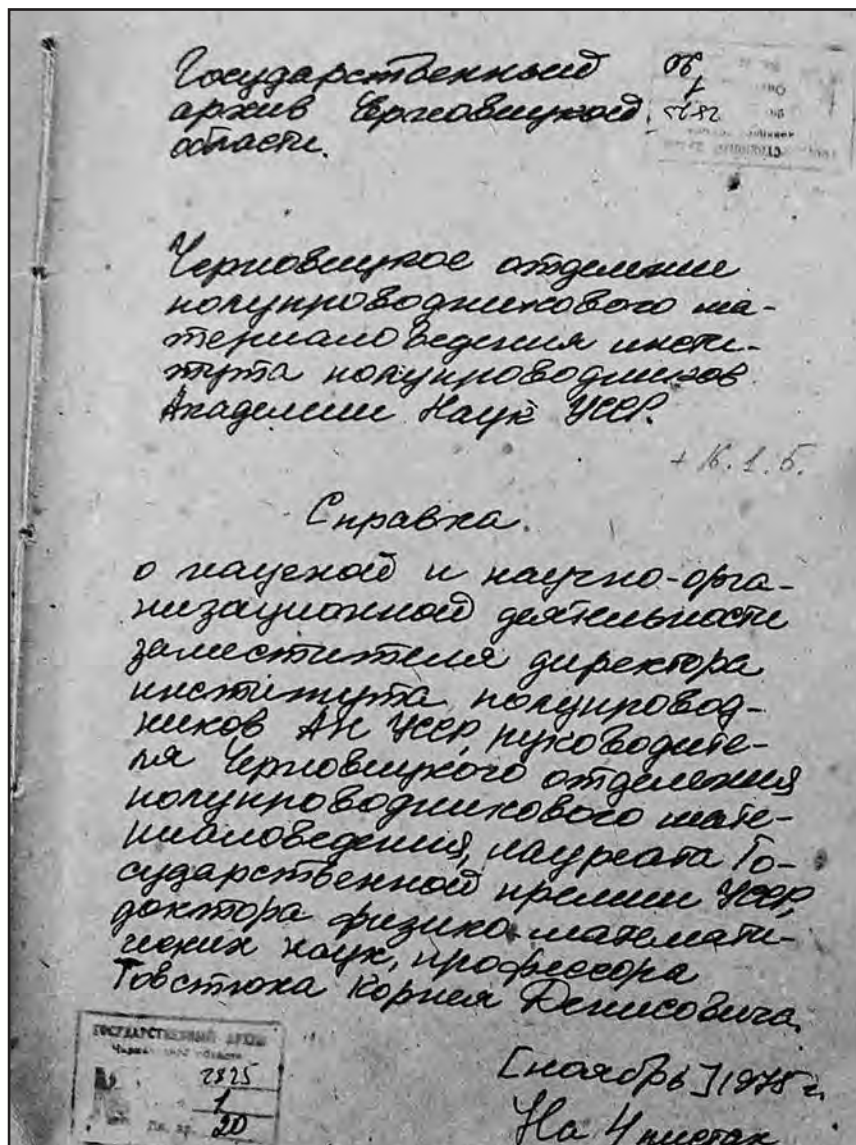 Государственный
архив Черновицкой
области.
Черновицкое отделение
полупроводникового ма-
териаловедения инсти-
тута полупроводников
Академии Наук УССР.
Справка.
о научной и научно-орга-
низационной деятельности
заместителя директора
института полупровод-
ников АН УССР, руководите-
ля Черновицкого отделения
полупроводникового мате-
риаловедения, лауреата Го-
сударственной премии УССР,
доктора физико-математи-
ческих наук, профессора
Товстюка Корнея Денисовича.
[ноябрь] 1975 г.
На 4 листах
ГОСУДАРСТВЕННЫЙ АРХИВ
Черновицкой области
2825
1
20
2825
1
20